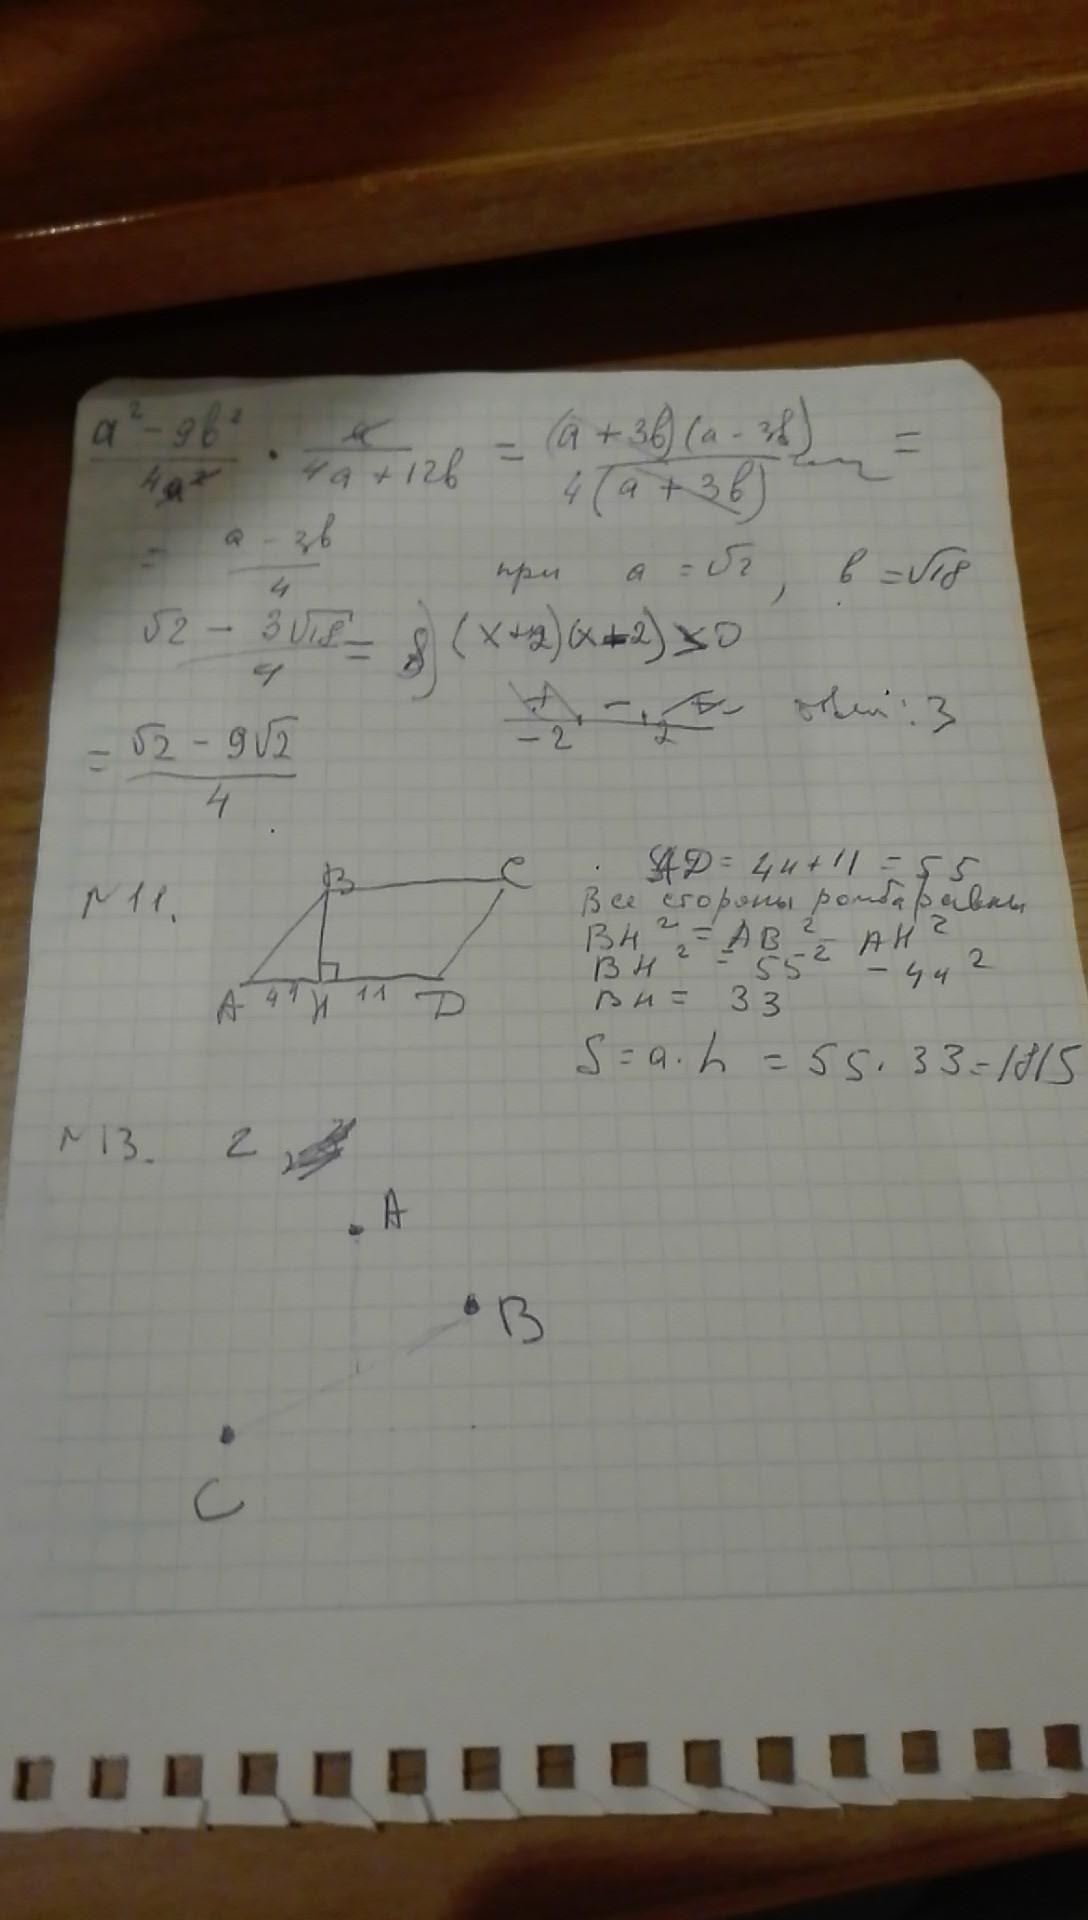 a² - 9b² / 4a² · a / 4a + 12b = (a + 3b)(a - 3b) / 4(a + 3b) =
= a - 3b / 4 при a = √2, b = √18
√2 - 3√18 / 4 = 8) (x+2)(x-2) > 0
+ - + -2 2 ответ: 3
= √2 - 9√2 / 4
N 11. B C
A 44 H 11 D
AD = 44 + 11 = 55
Все стороны ромба равны
BH² = AB² - AH²
BH² = 55² - 44²
BH = 33
S = a · h = 55 · 33 = 1815
N 13. 2
A
B
C